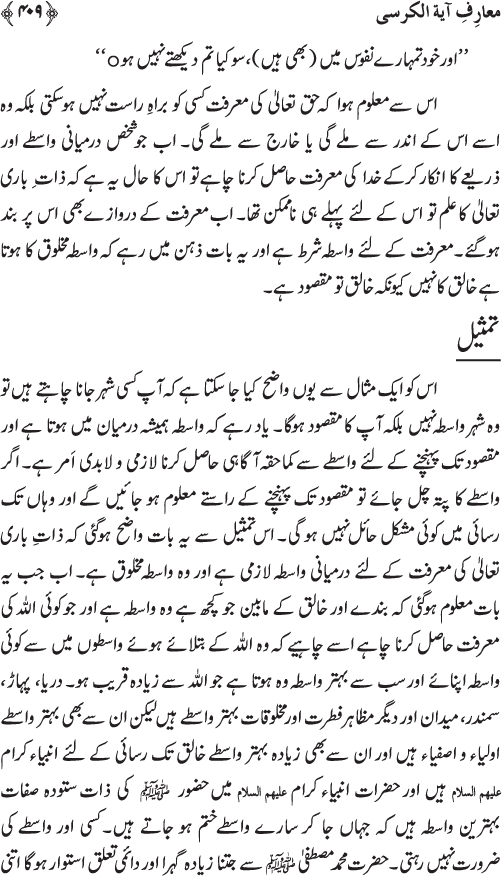 معارفِ آیۃ الکرسی ﴿۴۰۹﴾
’’اور خود تمہارے نفوس میں (بھی ہیں)، سو کیا تم دیکھتے نہیں ہو۝‘‘
اس سے معلوم ہوا کہ حق تعالیٰ کی معرفت کسی کو براہِ راست نہیں ہوسکتی بلکہ وہ
اسے اس کے اندر سے ملے گی یا خارج سے ملے گی۔ اب جو شخص درمیانی واسطے اور
ذریعے کا انکار کرکے خدا کی معرفت حاصل کرنا چاہے تو اس کا حال یہ ہے کہ ذاتِ باری
تعالیٰ کا علم تو اس کے لئے پہلے ہی ناممکن تھا۔ اب معرفت کے دروازے بھی اس پر بند
ہوگئے۔ معرفت کے لئے واسطہ شرط ہے اور یہ بات ذہن میں رہے کہ واسطہ مخلوق کا ہوتا
ہے خالق کا نہیں کیونکہ خالق تو مقصود ہے۔
تمثیل
اس کو ایک مثال سے یوں واضح کیا جا سکتا ہے کہ آپ کسی شہر جانا چاہتے ہیں تو
وہ شہر واسطہ نہیں بلکہ آپ کا مقصود ہوگا۔ یاد رہے کہ واسطہ ہمیشہ درمیان میں ہوتا ہے اور
مقصود تک پہنچنے کے لئے واسطے سے کماحقہ آگاہی حاصل کرنا لازمی و لابدی اَمر ہے۔ اگر
واسطے کا پتہ چل جائے تو مقصود تک پہنچنے کے راستے معلوم ہو جائیں گے اور وہاں تک
رسائی میں کوئی مشکل حائل نہیں ہو گی۔ اس تمثیل سے یہ بات واضح ہوگئی کہ ذاتِ باری
تعالیٰ کی معرفت کے لئے درمیانی واسطہ لازمی ہے اور وہ واسطہ مخلوق ہے۔ اب جب یہ
بات معلوم ہوگئی کہ بندے اور خالق کے مابین جو کچھ ہے وہ واسطہ ہے اور جو کوئی اللہ کی
معرفت حاصل کرنا چاہے اسے چاہیے کہ وہ اللہ کے بتلائے ہوئے واسطوں میں سے کوئی
واسطہ اپنائے اور سب سے بہتر واسطہ وہ ہوتا ہے جو اللہ سے زیادہ قریب ہو۔ دریا، پہاڑ،
سمندر، میدان اور دیگر مظاہر فطرت اور مخلوقات بہتر واسطے ہیں لیکن ان سے بھی بہتر واسطے
اولیاء و اصفیاء ہیں اور ان سے بھی زیادہ بہتر واسطے خالق تک رسائی کے لئے انبیاء کرام
علیہم السلام ہیں اور حضرات انبیاء کرام علیہم السلام میں حضور ﷺ کی ذات ستودہ صفات
بہترین واسطہ ہیں کہ جہاں جا کر سارے واسطے ختم ہو جاتے ہیں۔ کسی اور واسطے کی
ضرورت نہیں رہتی۔ حضرت محمد مصطفیٰ ﷺ سے جتنا زیادہ گہرا اور دائمی تعلق استوار ہوگا اتنی